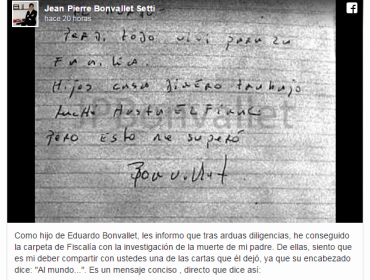 Jean Pierre Bonvallet Setti
hace 20 horas
Pero, todo viví para su
Familia.
Hijos casa dinero trabajo
Luché Hasta El Final
Pero Esto me superó
Bonvallet
JPBonvallet
Como hijo de Eduardo Bonvallet, les informo que tras arduas diligencias, he conseguido
la carpeta de Fiscalía con la investigación de la muerte de mi padre. De ellas, siento que
es mi deber compartir con ustedes una de las cartas que él dejó, ya que su encabezado
dice: "Al mundo...". Es un mensaje conciso , directo que dice así: